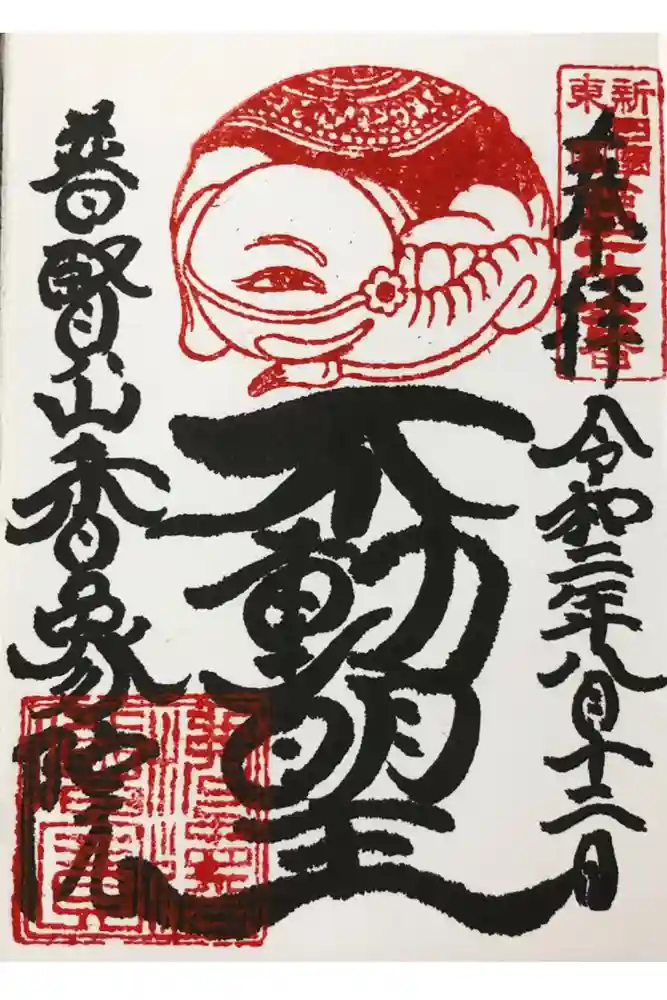 新
東
奉拝
令和二年八月十二日
不動明王
普賢山香象院